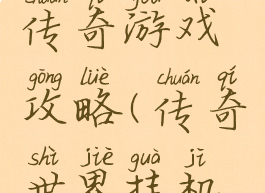 传奇游戏
gōng lüè chuán qí
攻略(传奇
shì jiè guà jī
世界挂机